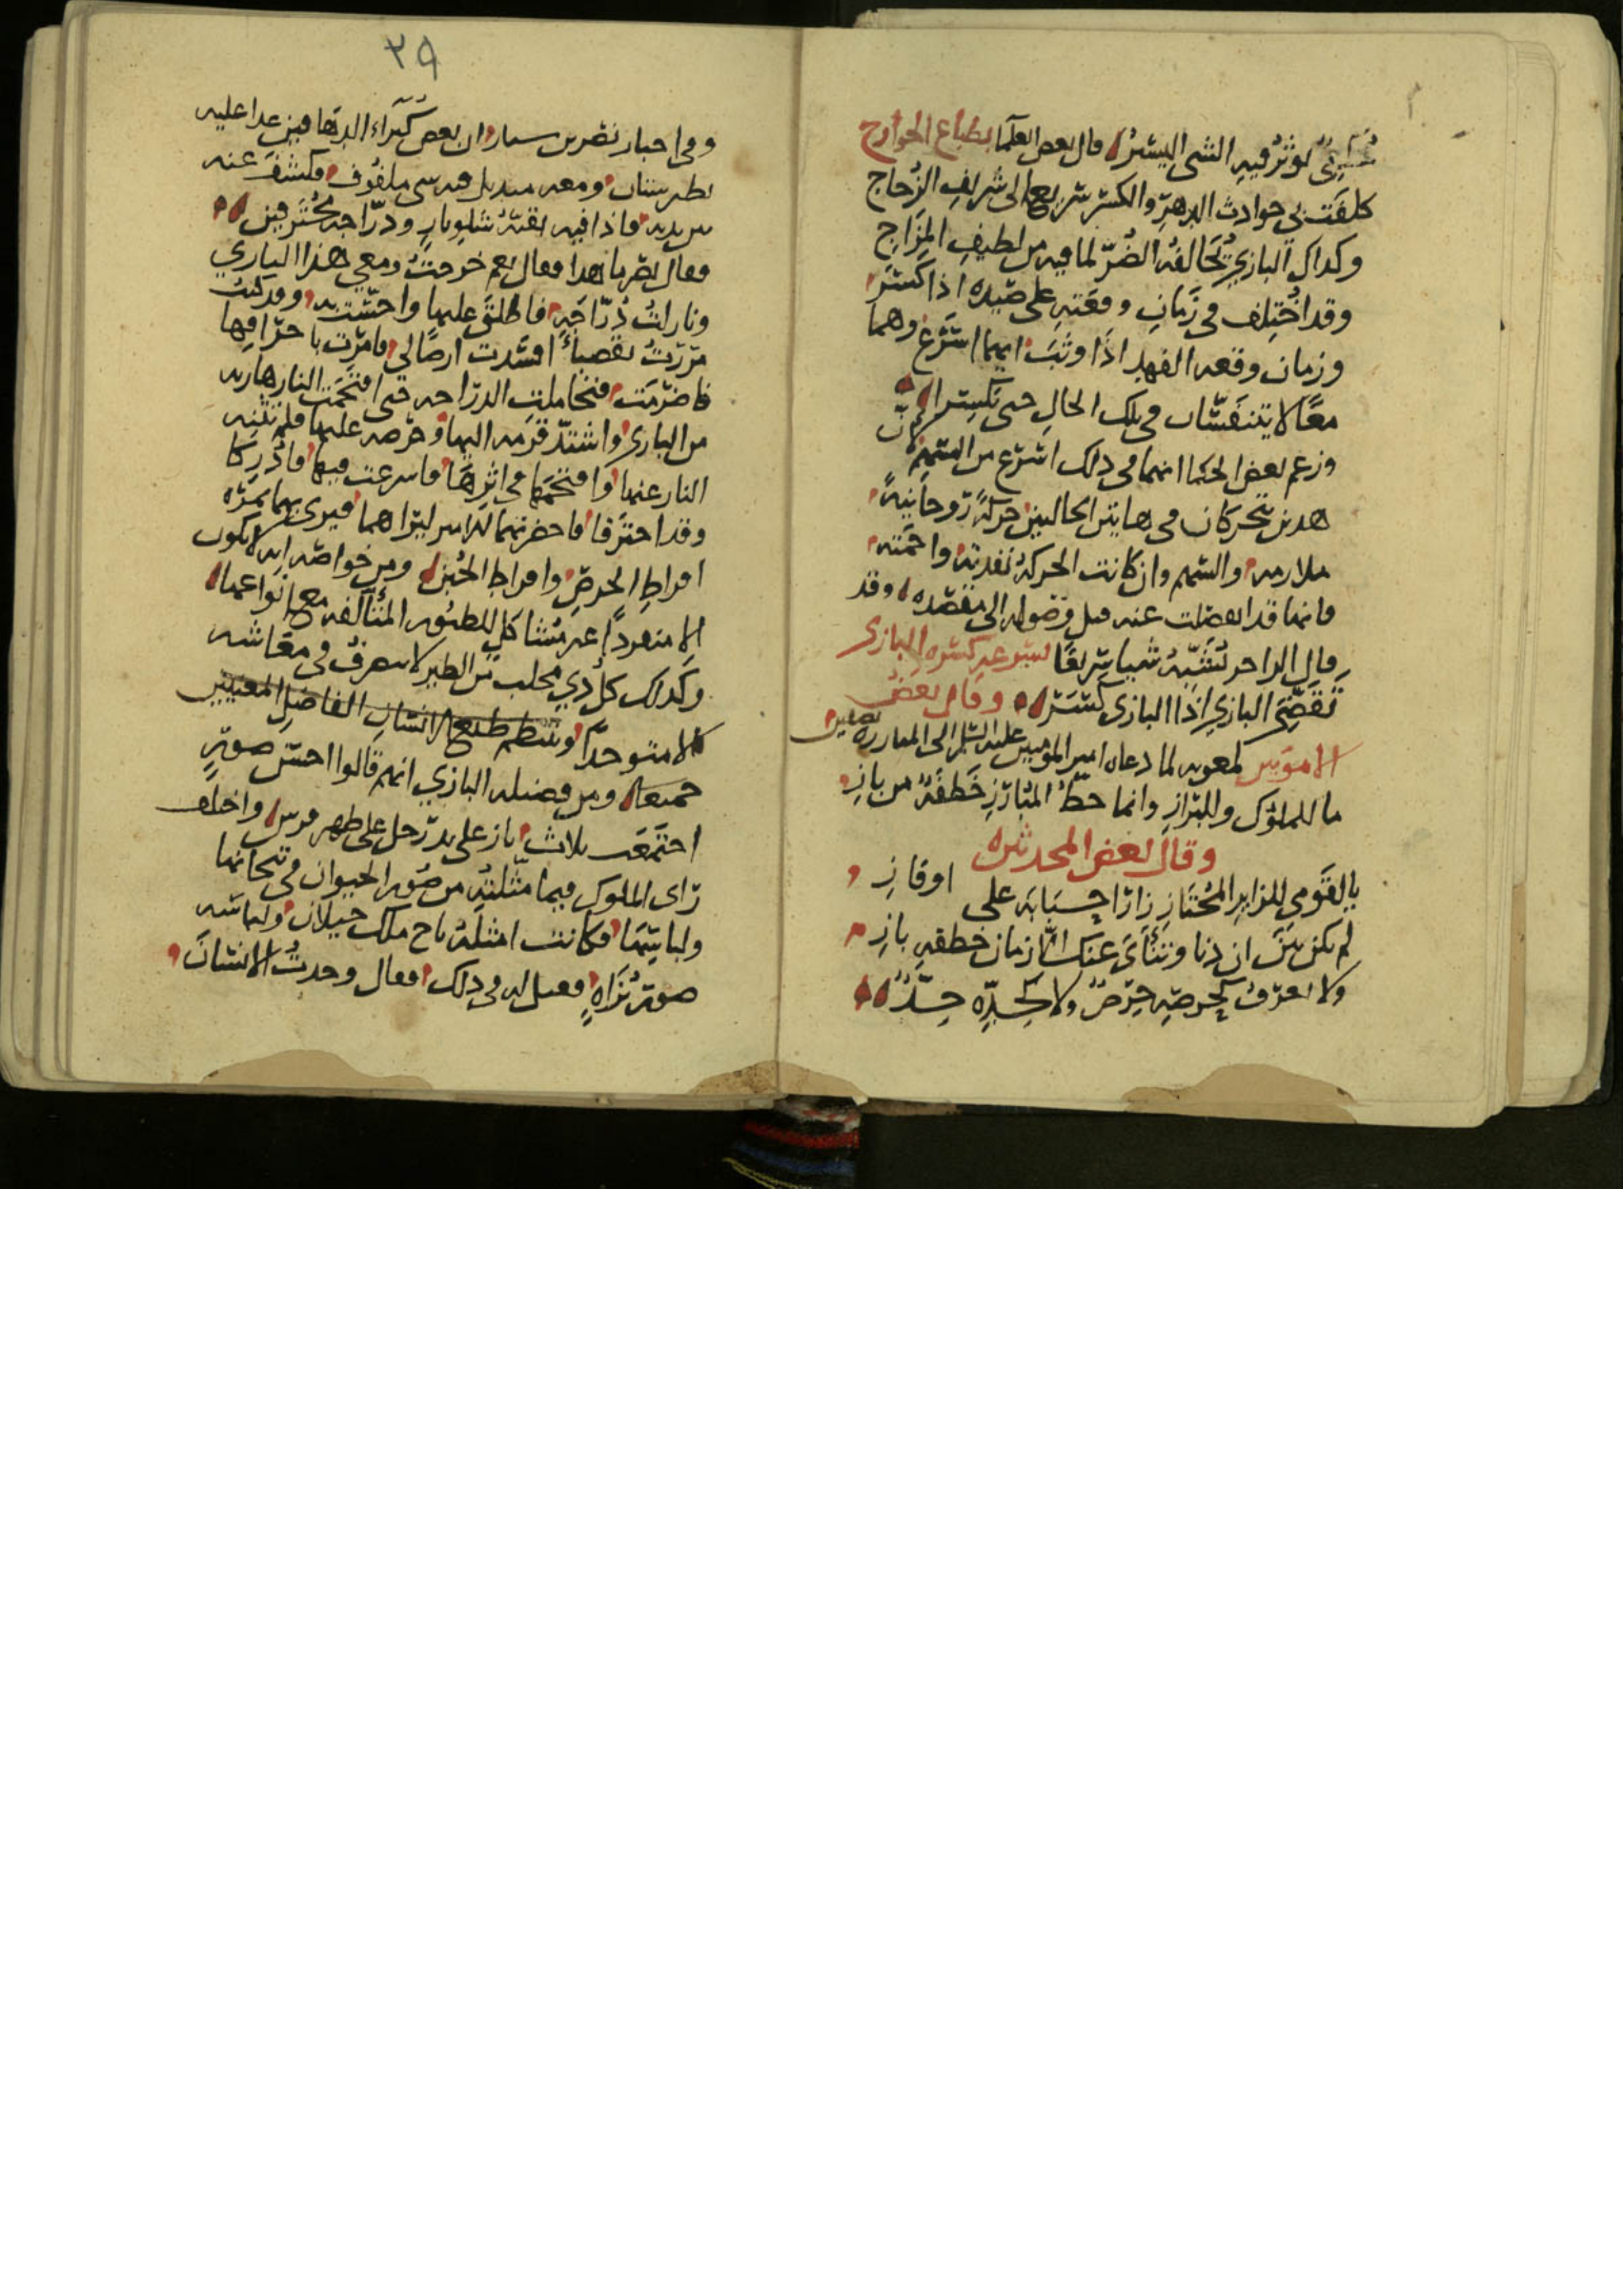 يؤثر فيه الشي اليسير قال بعض العلما بطباع الجوارح
كلفت بي حوادث الدهر والكسر سريع الى شريف الزجاج
وكذاك البازي يحالفه الضر لما فيه من لطيف المزاج
وقد اختلف في زمان وقعته على صيده اذا كسر
وزمان وقعه الفهد اذا وثب ايهما اسرع وهما
معا لا يتنفسان في تلك الحال حتى يكسرا لان
وزعم بعض الحكما انهما في ذلك اسرع من السهم
هذين يتحركان في هاتين الحالتين حركة روحانية
ملازمه والسهم وان كانت الحركة نفذته واحمته
فانها قد انفصلت عنه قبل وصوله الى مقصده وقد
قال الراجز يشبه شيا سريعا بسرعه كسره البازي
تقضي البازي اذا البازي كسر وقال بعض
الامويين لمعويه لما دعاه امير المومنين عليه السلم الى المبارزه بصفين
ما للملوك وللبراز وانما حظ المبارز خطفة من باز
وقال بعض المحدثين
يا لقومي للزاير المجتاز زارا على اوفاز
لم يكن بين ان دنا وتناءى عنك الا زمان خطفه باز
ولا يعرف كحرصه حرص ولا كجده جد
٢٩
وفي اخبار نصر بن سيار ان بعض كبراء الدهاقين غدا عليه
بطبرستان ومعه منديل فيه شي ملفوف فكشف عنه
بين يديه فاذا فيه بقية شلو باز ودراجه محترقين
فقال نصر ما هذا فقال نعم خرجت ومعي هذا البازي
وثارت دراجه فاطلق عليها واحست به وقد كنت
مررت بقصباء افسدت ارضا لي فامرت باحراقها
فاضرمت فتحاملت الدراجه حتى اقتحمت النار هاربه
من البازي واشتد قرمه اليها وحرصه عليها فلم تثنه
النار عنها واقتحمها في اثرها فاسرعت فيها فادركا
وقد احترقا فاحضرتهما الامير ليراهما فيرى بهما ثمره
افراط الحرص وافراط الجبن ومن خواصه انه لا يكون
الا منفردا غير مشاكل للطيور المتآلفه مع انواعها
وكذلك كل ذي مخلب من الطير لا يتصرف في معاشه
الا متوحدا وينتظم طبع الانسان الفاضل المعنيين
جميعا ومن فضيله البازي انهم قالوا احسن صوره
اجتمعت ثلاث باز على يد رجل على ظهر فرس واختلف
راى الملوك فيما مثلته من صور الحيوان في تيجانها
ولباسها فكانت امثله تاج ملك جيلان ولباسه
صوره بزاه فقيل له في ذلك فقال وجدت الانسان